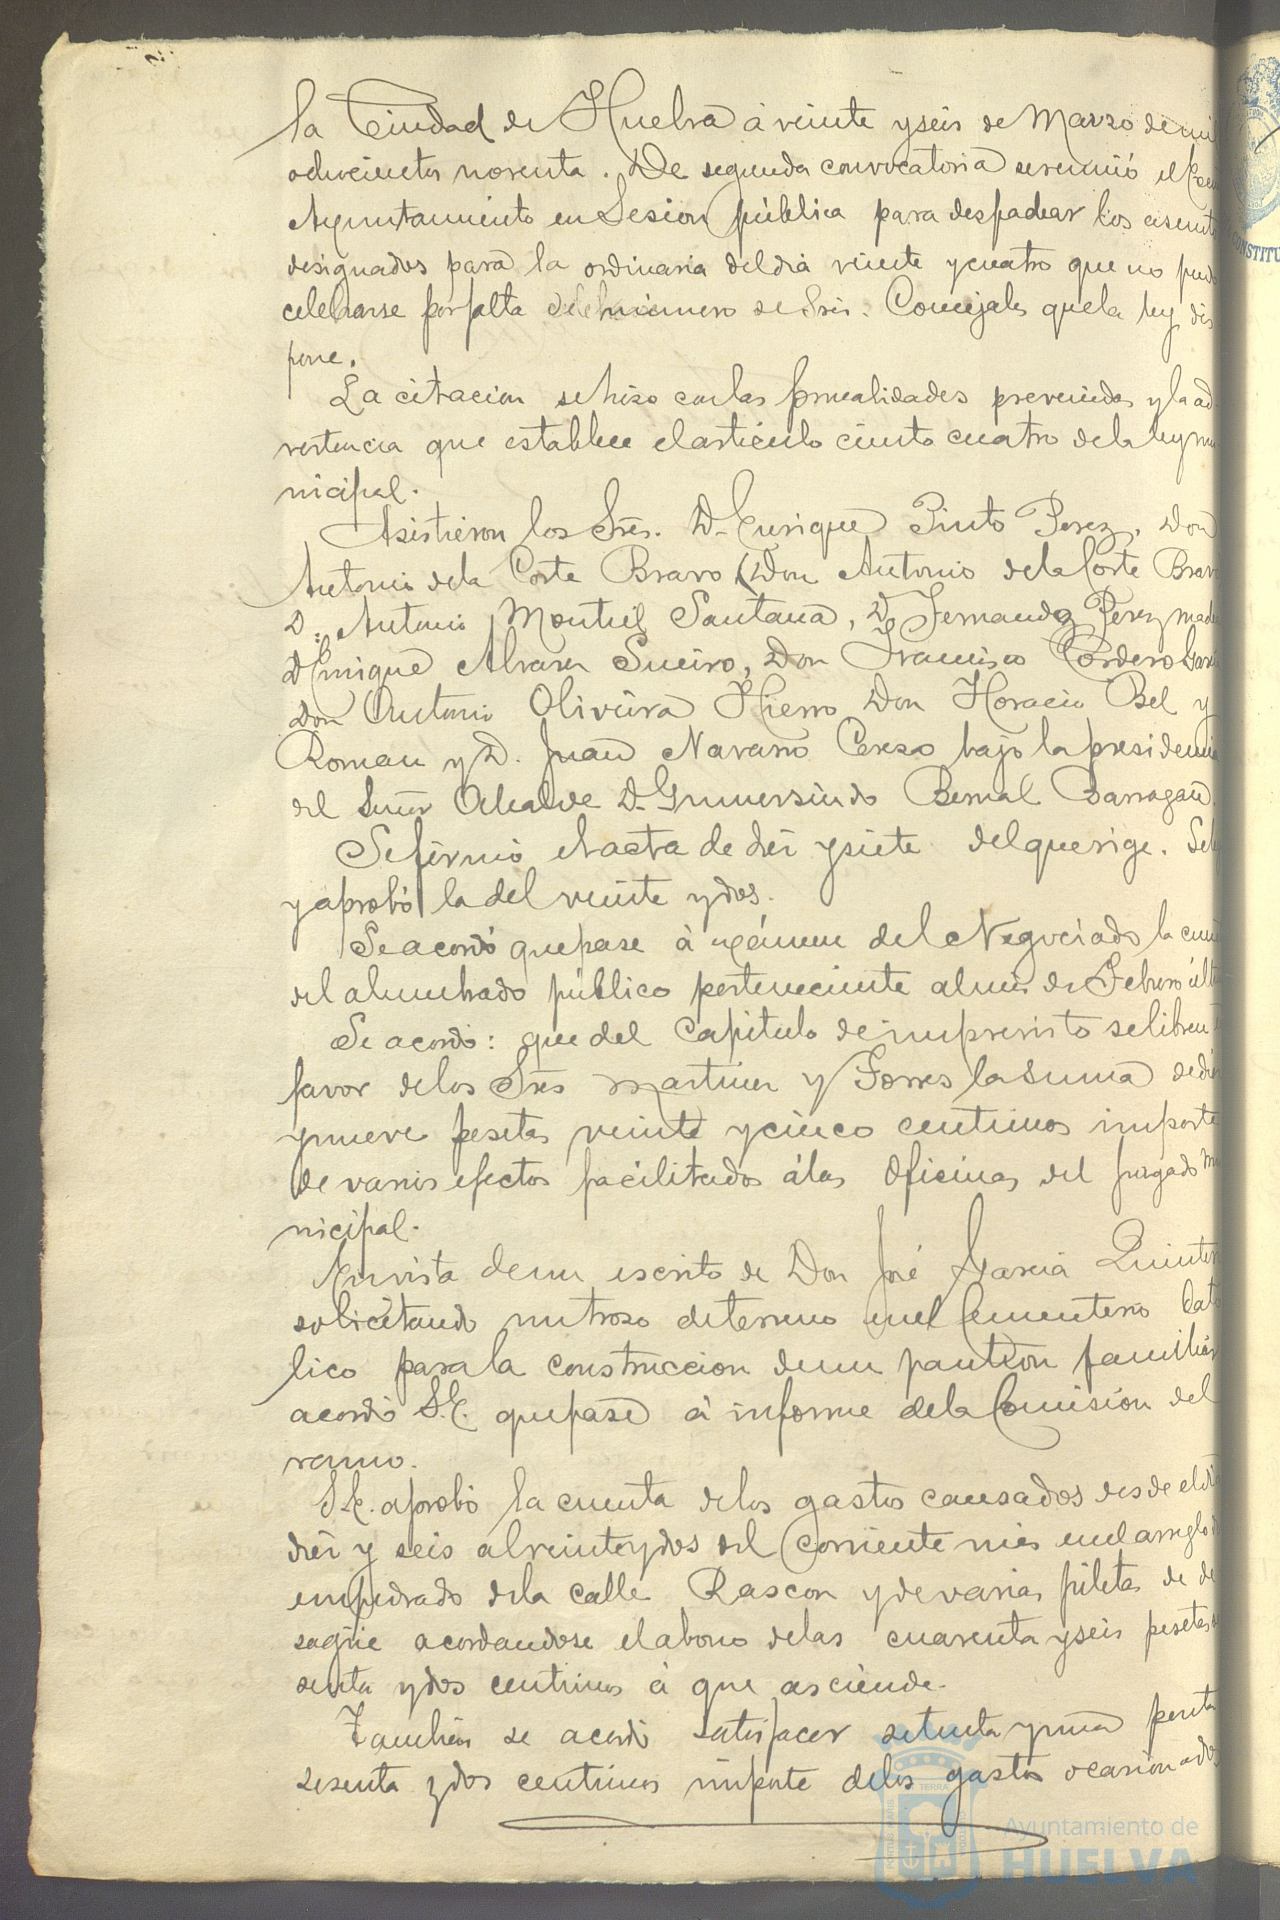 la Ciudad de Huelva á veinte y seis de Marzo de mil
ochocientos noventa. De segunda convocatoria se reunió el Exc
Ayuntamiento en Sesion pública para despachar los asunt
designados para la ordinaria del dia veinte y cuatro que no pudo
celebrarse por falta del número de Sres. Concejales que la ley dis
pone.
La citacion se hizo con las formalidades prevenidas y la ad
vertencia que establece el articulo ciento cuatro de la ley mu
nicipal.
Asistieron los Sres. D. Enrique Pinto Perez, Don
Antonio de la Corte Bravo (Don Antonio de la Corte Bravo
D. Antonio Montiel Santana, D. Fernando Perez
D Enrique Alvarez Sueiro, Don Francisco Cordero Garcia
Don Antonio Oliveira Hierro Don Horacio Bel y
Roman y D. Juan Navarro Cerezo bajo la presidencia
del Señor Alcalde D. Gumersindo Bernal Barragan.
Se firmó el acta de diez y siete del que rige. Se
y aprobó la del veinte y dos.
Se acordó que pase á exámen del Negociado la cuen
del alumbrado público perteneciente al mes de Febrero últ
Se acordó: que del capitulo de imprevisto se libren
favor de los Sres Martinez y Torres la suma de diez
y nueve pesetas veinte y cinco centimos importe
de varios efectos facilitados á las Oficinas del juzgado mu
nicipal.
En vista de un escrito de Don José Garcia Quintero
solicitando un trozo de terreno en el Cementerio Cató
lico para la construccion de un panteon familiar
acordó S.E. que pase á informe de la Comision del
ramo.
S.E. aprobó la cuenta de los gastos causados desde el dia
diez y seis al veinte y dos del corriente mes en el arreglo de
empedrado de la calle Rascon y de varias piletas de de
sagüe acordandose el abono de las cuarenta y seis pesetas
senta y dos centimos á que asciende.
Tambien se acordó satisfacer setenta y una peseta
sesenta y dos centimos importe de los gastos ocasionados
CONSTITU
Ayuntamiento de
HUELVA